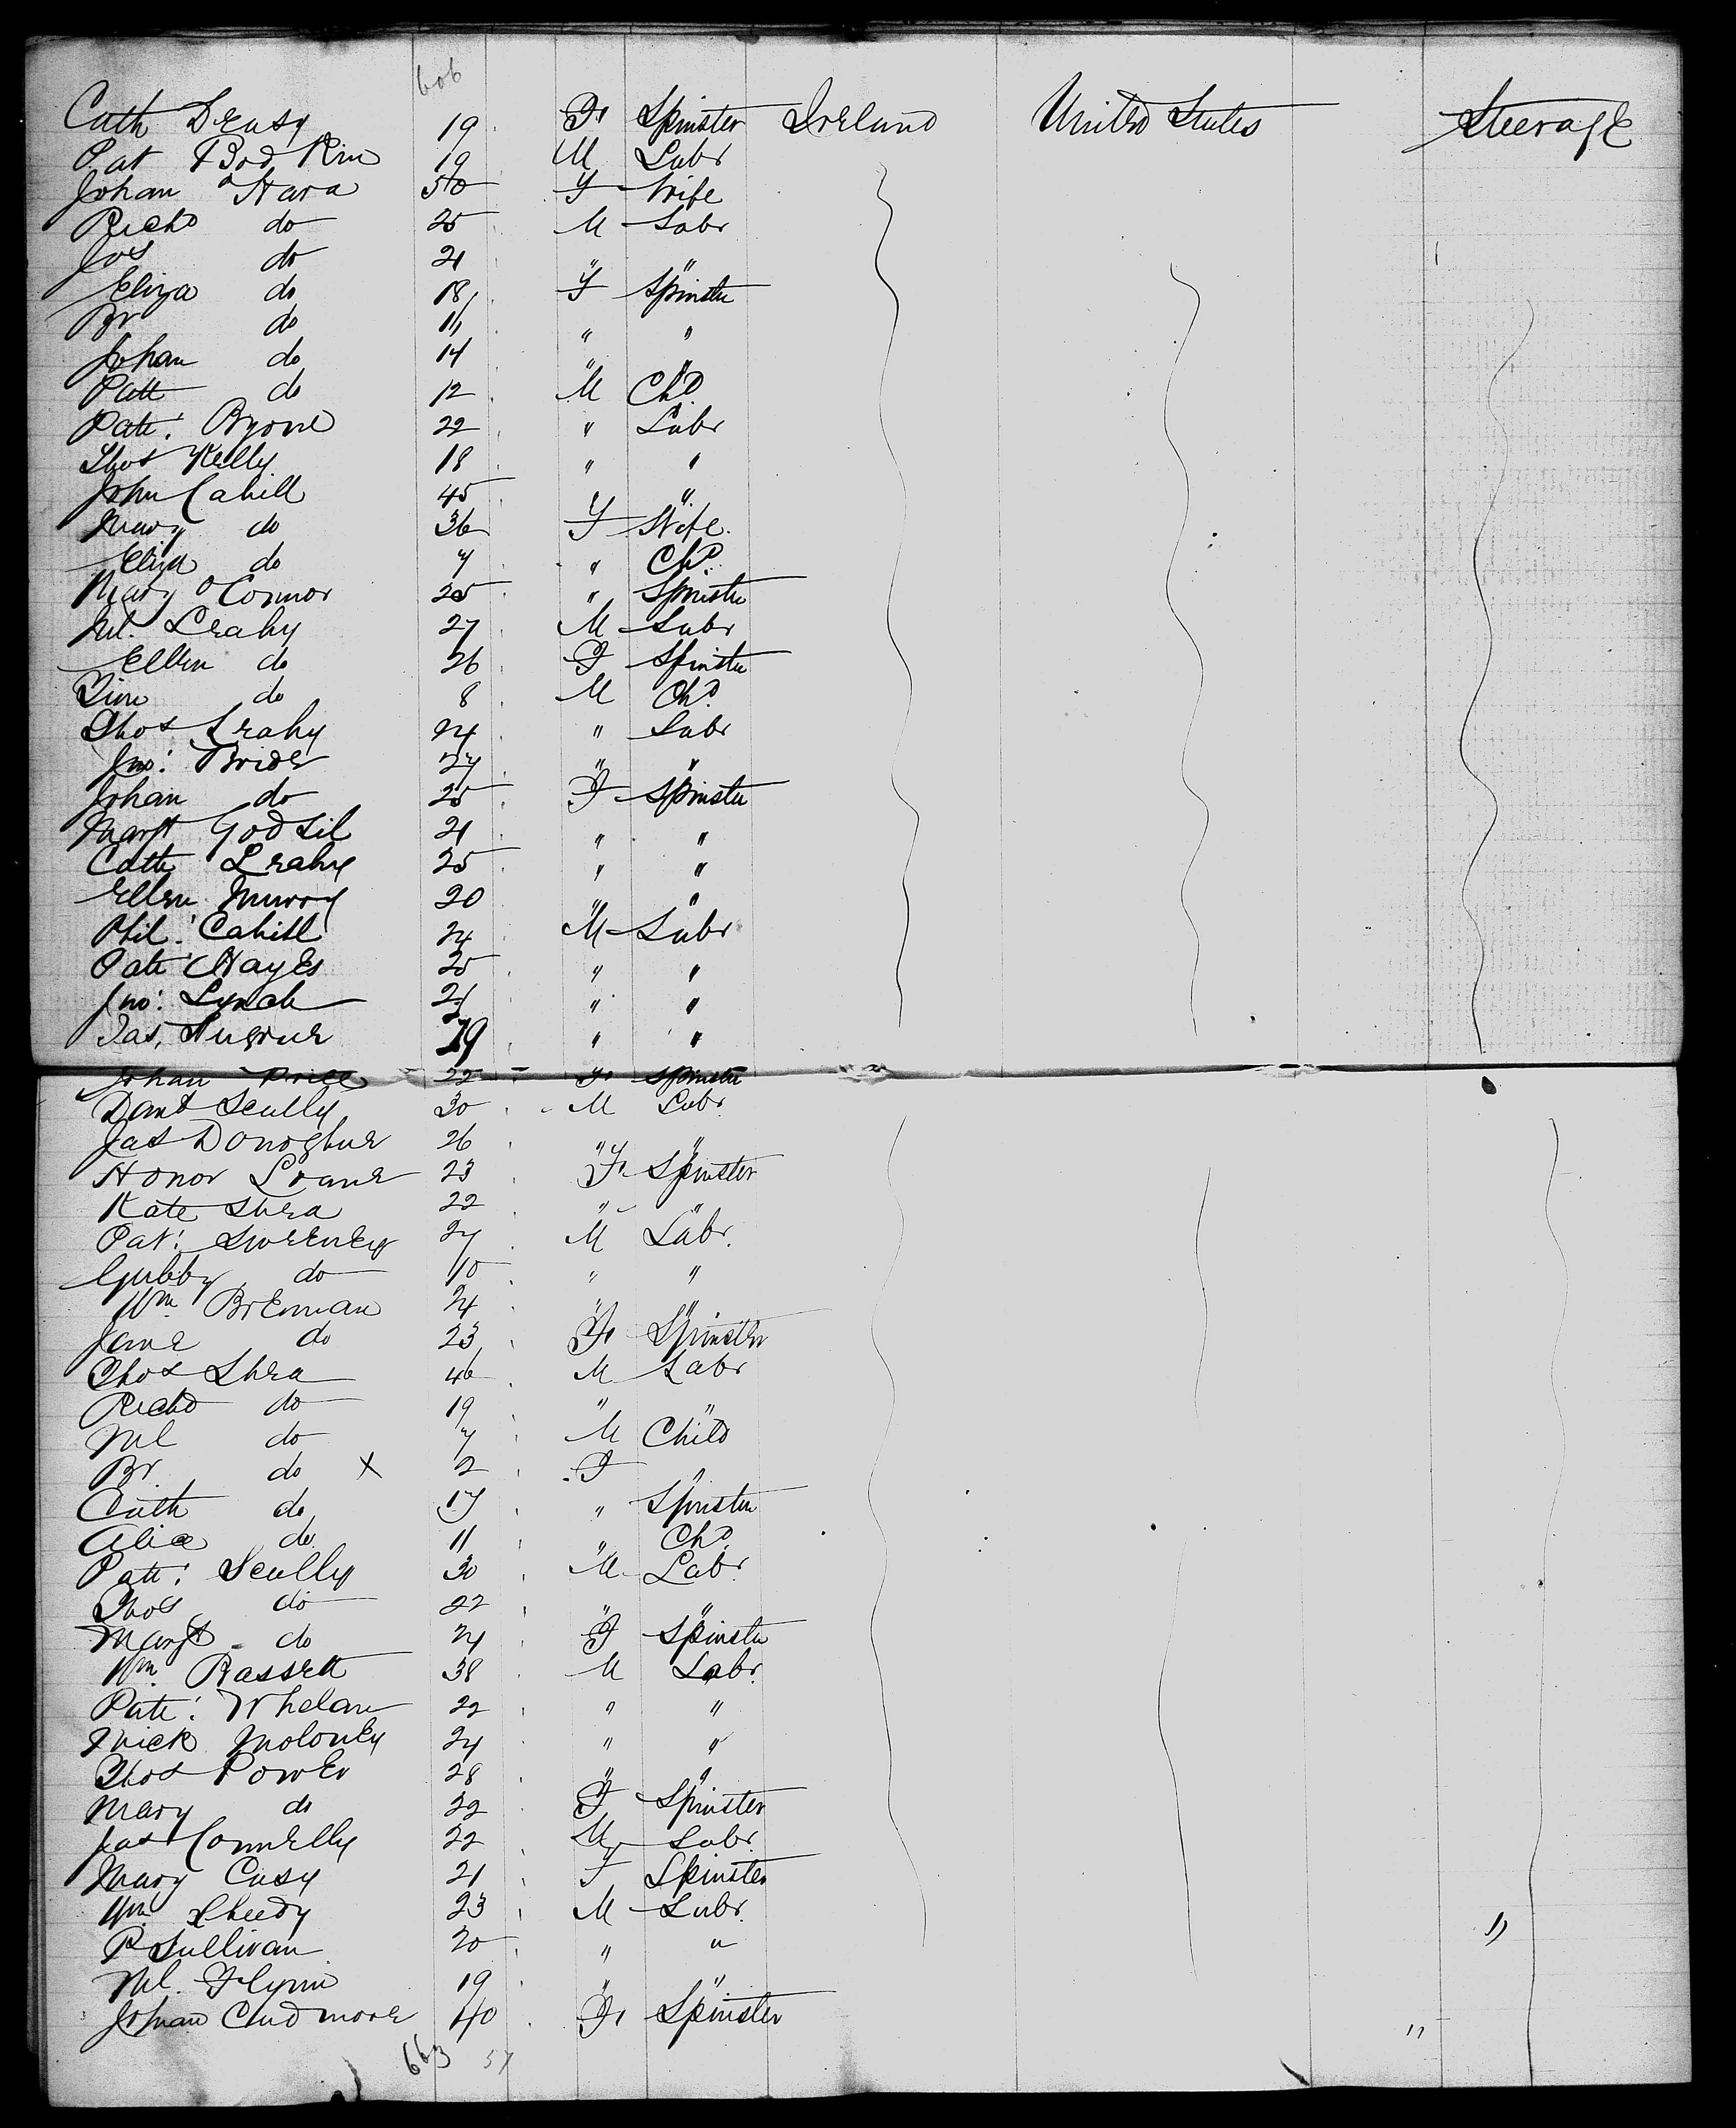 606
Cath Deasy 19 F Spinster Ireland United States Steerage
Pat 19 M Labr
Johan O'Hara 50 F Wife
Richd do 25 M Labr
Jos do 21 " "
Eliza do 18 F Spinster
Br do 16 " "
Johan do 14 " "
Patt do 12 M Chd
Patt: Byone 22 " Labr
Thos Kelly 18 " "
John Cahill 45 " "
Mary do 36 F Wife
Eliza do 7 " Chd
Mary O'Connor 25 " Spinster
Ml. Leahy 27 M Labr
Ellen do 26 F Spinster
Tim do 8 M Chd
Thos Leahy 24 " Labr
Jno: Brider 27 " "
Johan do 25 F Spinster
Margt Godsil 21 " "
Cath Leahy 25 " "
Ellen Murroy 20 " "
Phil: Cahill 24 M Labr
Patt Hayes 25 " "
Jno: Lynch 21 " "
Jas. 19 " "
Johan Price 22 F Spinster
Danl Scully 30 M Labr
Jas Donoghue 26 " "
Honor Loane 23 F Spinster
Kate Shea 22 " "
Pat: Sweeney 27 M Labr.
Gubby do 10 " "
Wm Brennan 24 " "
Jane do 23 F Spinster
Thos Shea 46 M Labr
Richd do 19 " "
Ml do 7 M Child
Br. do X 2 F "
Cath do 17 " Spinster
Alice do 11 " Chd
Patt: Scully 30 M Labr
Thos do 22 " "
Margt do 24 F Spinster
Wm. Bassett 38 M Labr.
Patt: Whelan 22 " "
Mick Moloney 24 " "
Thos Power 28 " "
Mary do 22 F Spinster
Jas Connelly 22 M Labr.
Mary Casy 21 F Spinster
Wm Sheedy 23 M Labr. "
P Sullivan 20 " "
Ml. Flynn 19 " "
Johan Cudmore 40 F Spinster "
663 57